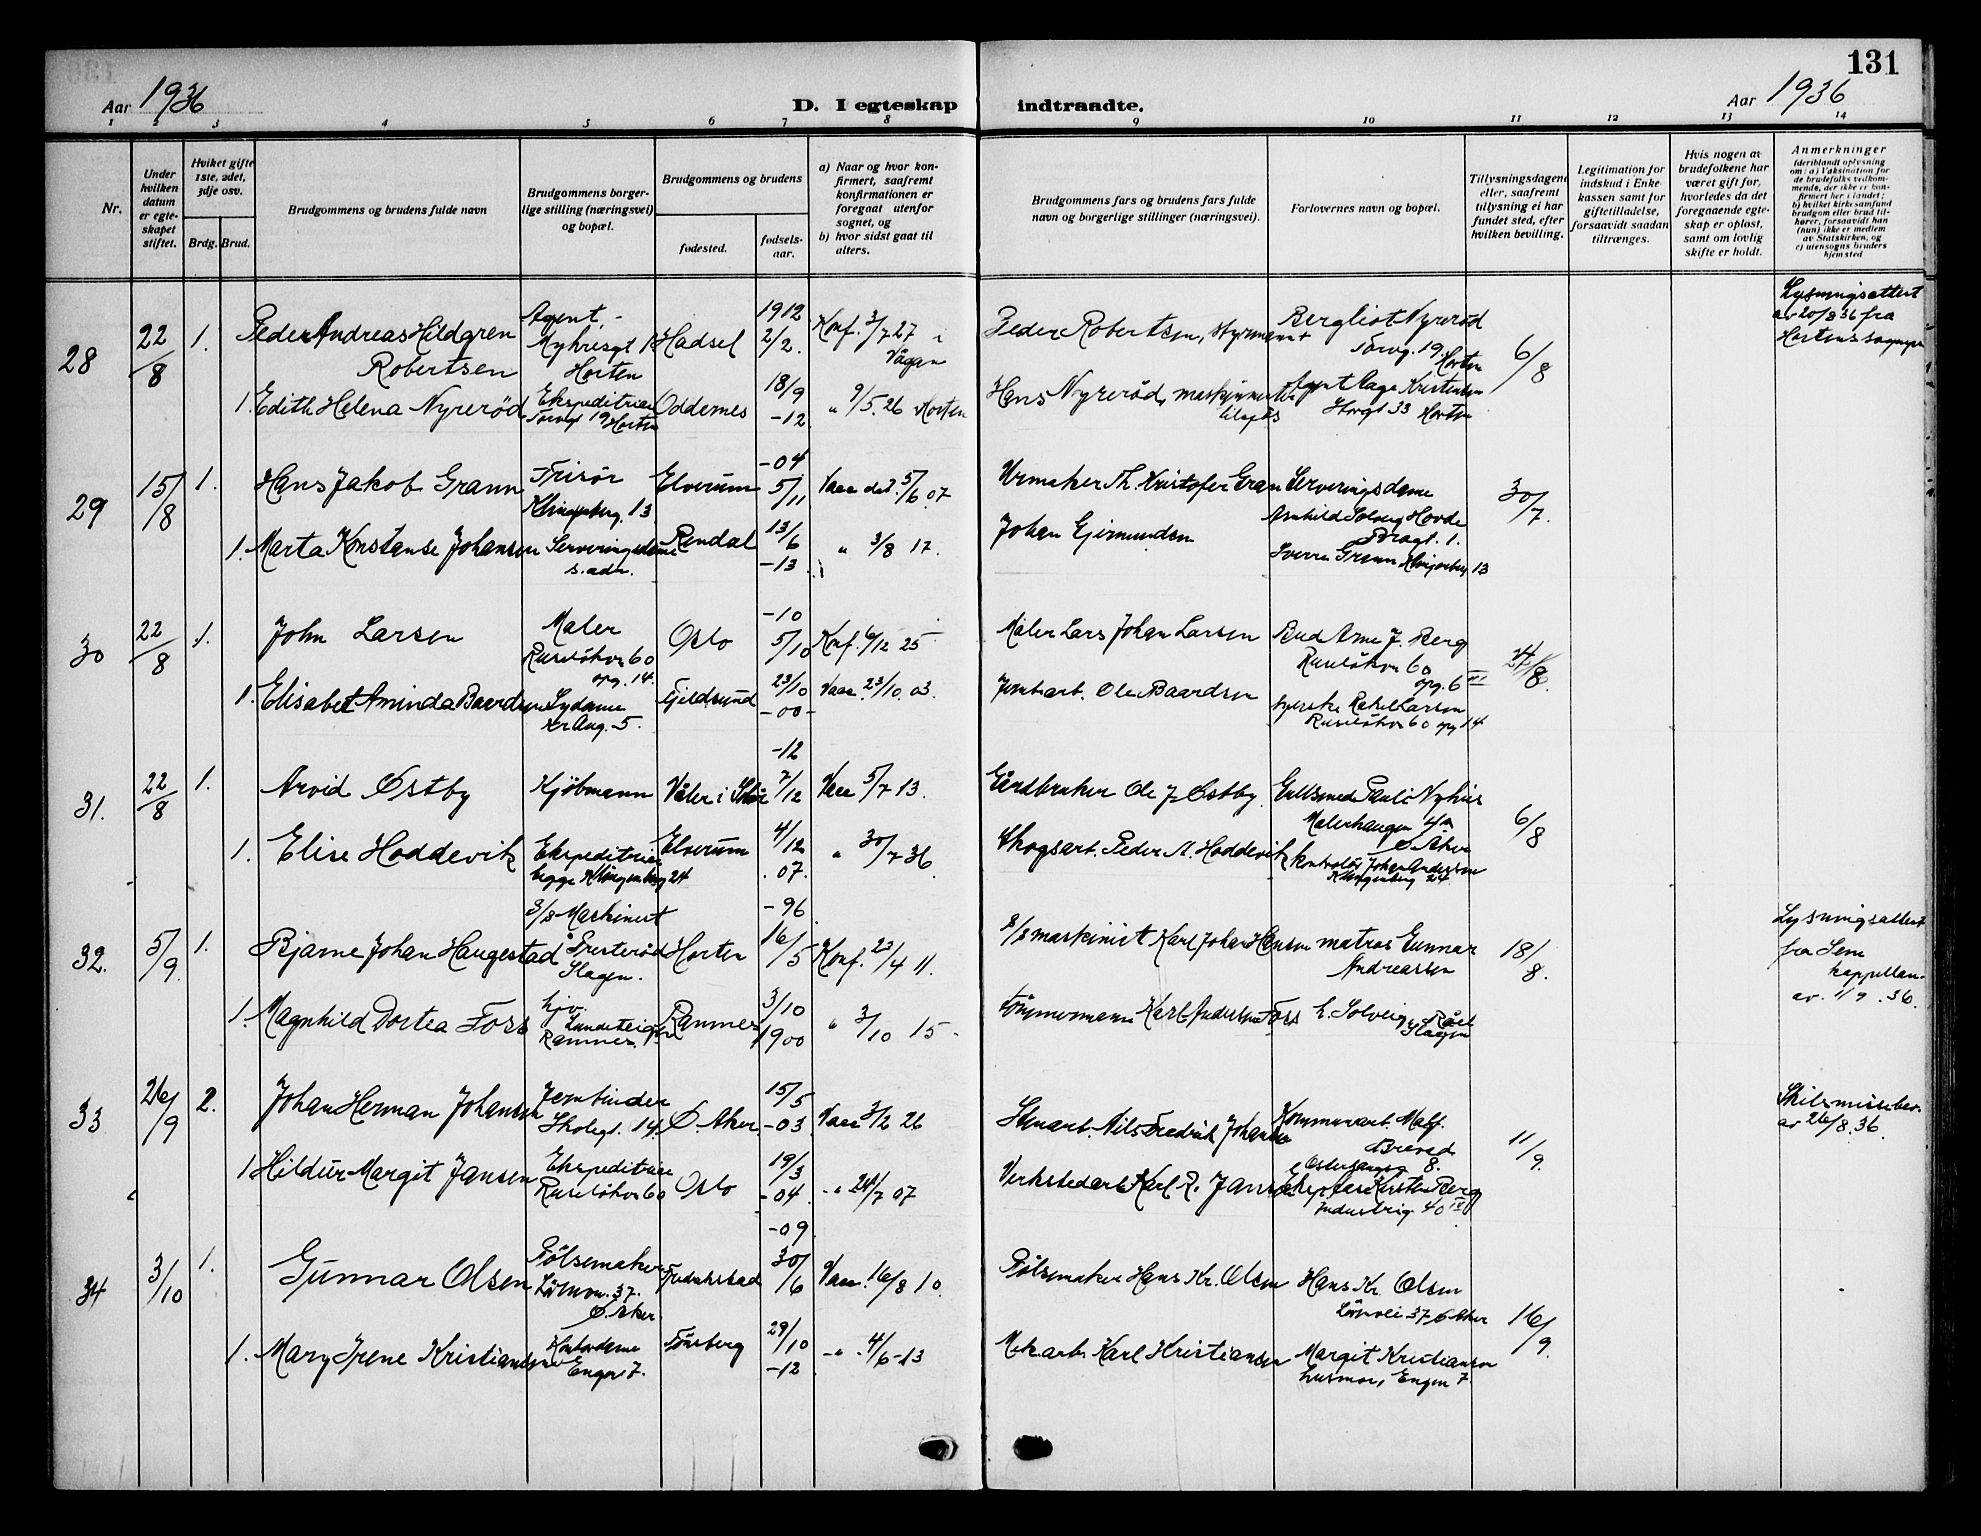 131
Aar 1936
D. I egteskap indtraadte.
Aar 1936
1 2 3 4 5 6 7 8 9 10 11 12 13 14
Nr.
Under hvilken datum er egteskapet stiftet.
Hvilket gifte 1ste, 2det, 3dje osv.
Brdg. Brud.
Brudgommens og brudens fulde navn
Brudgommens borgerlige stilling (næringsvei) og bopæl.
Brudgommens og brudens
fødested.
fødselsaar.
a) Naar og hvor konfirmert, saafremt konfirmationen er foregaat utenfor sognet, og
b) hvor sidst gaat til alters.
Brudgommens fars og brudens fars fulde navn og borgerlige stillinger (næringsvei).
Forlovernes navn og bopæl.
Tillysningsdagene eller, saafremt tillysning ei har fundet sted, efter hvilken bevilling.
Legitimation for indskud i Enkekassen samt for giftetilladelse, forsaavidt saadan tiltrænges.
Hvis nogen av brudefolkene har været gift før, hvorledes da det foregaaende egteskap er opløst, samt om lovlig skifte er holdt.
Anmerkninger (deriblandt oplysning om: a) Vaksination for de brudefolks vedkommende, der ikke er konfirmert her i landet; b) hvilket kirkesamfund brudgom eller brud tilhører, forsaavidt han (hun) ikke er medlem av Statskirken, og c) utensogns bruders hjemsted
28 22/8 1. Peder Andreas Hildgren Robertsen Agent, Horten Hadsel 1912 2/2. Konf. 3/7 27 i Vågan Peder Robertsen, styrmann Bergliot Nyrerød Torvg. 19 Horten 6/8 Lysningsattest av 20/8 36 fra Hortens
1. Edith Helena Nyrerød Ekspeditrise Torvgt 19 Horten Oddernes 18/9 -12 " 9/5. 26 Horten Hans Nyrerød, Agent Aage Kristensen Storgt 33 Horten
29 15/8 1. Hans Jakob Grann Frisør Klingenberg. 13 Elverum -04 5/11 Vacc det 5/6 07 Urmaker Th. Kristofer Gran Serveringsdame Solveig Hovde 1. 30/7.
1. Marta Konstanse Johansen Serveringsdame s. adr. Rendal 13/6 -13 " 3/8 17. Johan Gjermundsen Sverre Grann Klingenberg 13
30 22/8 1. John Larsen Maler Ruseløkvn 60 opg. 14. Oslo -10 5/10 Konf. 6/12 25 Maler Lars Johan Larsen Bud Arne J. Berg Ruseløkvn 60 opg. 6 /8
1. Elisabet Aminda Baardsen Sydame Kr Aug. 5. Fjeldsund 23/10 -00- Vacc. 23/10. 03. Jernbart. Ole Baardsen Rakel Larsen Ruseløkvn 60 opg 14
31. 22/8 1. Arvid Østby Kjøbmann Våler i Solør -12 7/12 Vacc 5/7 13. Gårdbruker Ole J Østby Gullsmed Pauli Nyhus Malerhaugen 4a Ø. Aker 6/8
1. Elise Hoddevik Ekspeditrise begge Klingenberg 24 Elverum 4/12 07. " 30/7 36. Skogsarb. Peder A. Hoddevik kontorist Johan Andersen Klingenberg 24
32. 5/9. 1. Bjarne Johan Haugestad Maskinist Presterød Slagen. Horten -96 16/5 Konf. 23/4 11. maskinist Karl Johan Hansen matros Gunnar Andreassen 18/8. Lysningsattest fra Sem kappellan. av. 1/9. 36.
1. Magnhild Dortea Foss Ramnes. Ramnes 3/10 1900 " 3/10 15- tømmermann Karl Andersen Foss Solveig Råel Slagen
33 26/9 2. Johan Herman Johansen Jernbinder Skolegt. 14. Ø. Aker. 15/5 -03 Vacc 3/2 26 Stenarb. Nils Fredrik Johansen Kommunearb. 8. 11/9. Skilsmissebev. av 26/8. 36.
1 Hildur Margit Jansen Ekspeditrise Ruseløkvn 60 Oslo 19/3 -04. -"- 24/7 07 Verkstedarb Karl R. Jansen Kirsten Berg Industrig 40 IV
34 3/10 1. Gunnar Olsen Pølsemaker 37. Ø. Aker. Fredrikstad -09 30/6 Vacc. 16/8 10. Pølsemaker Hans Kr. Olsen Hans Kr. Olsen 37, Ø Aker 16/9.
1. Mary Irene Kristiansen Kontordame Engen 7. Tønsberg 29/10 -12 -"- 4/6-13 Mek. arb. Karl Kristiansen Margit Kristiansen husmor, Engen 7.